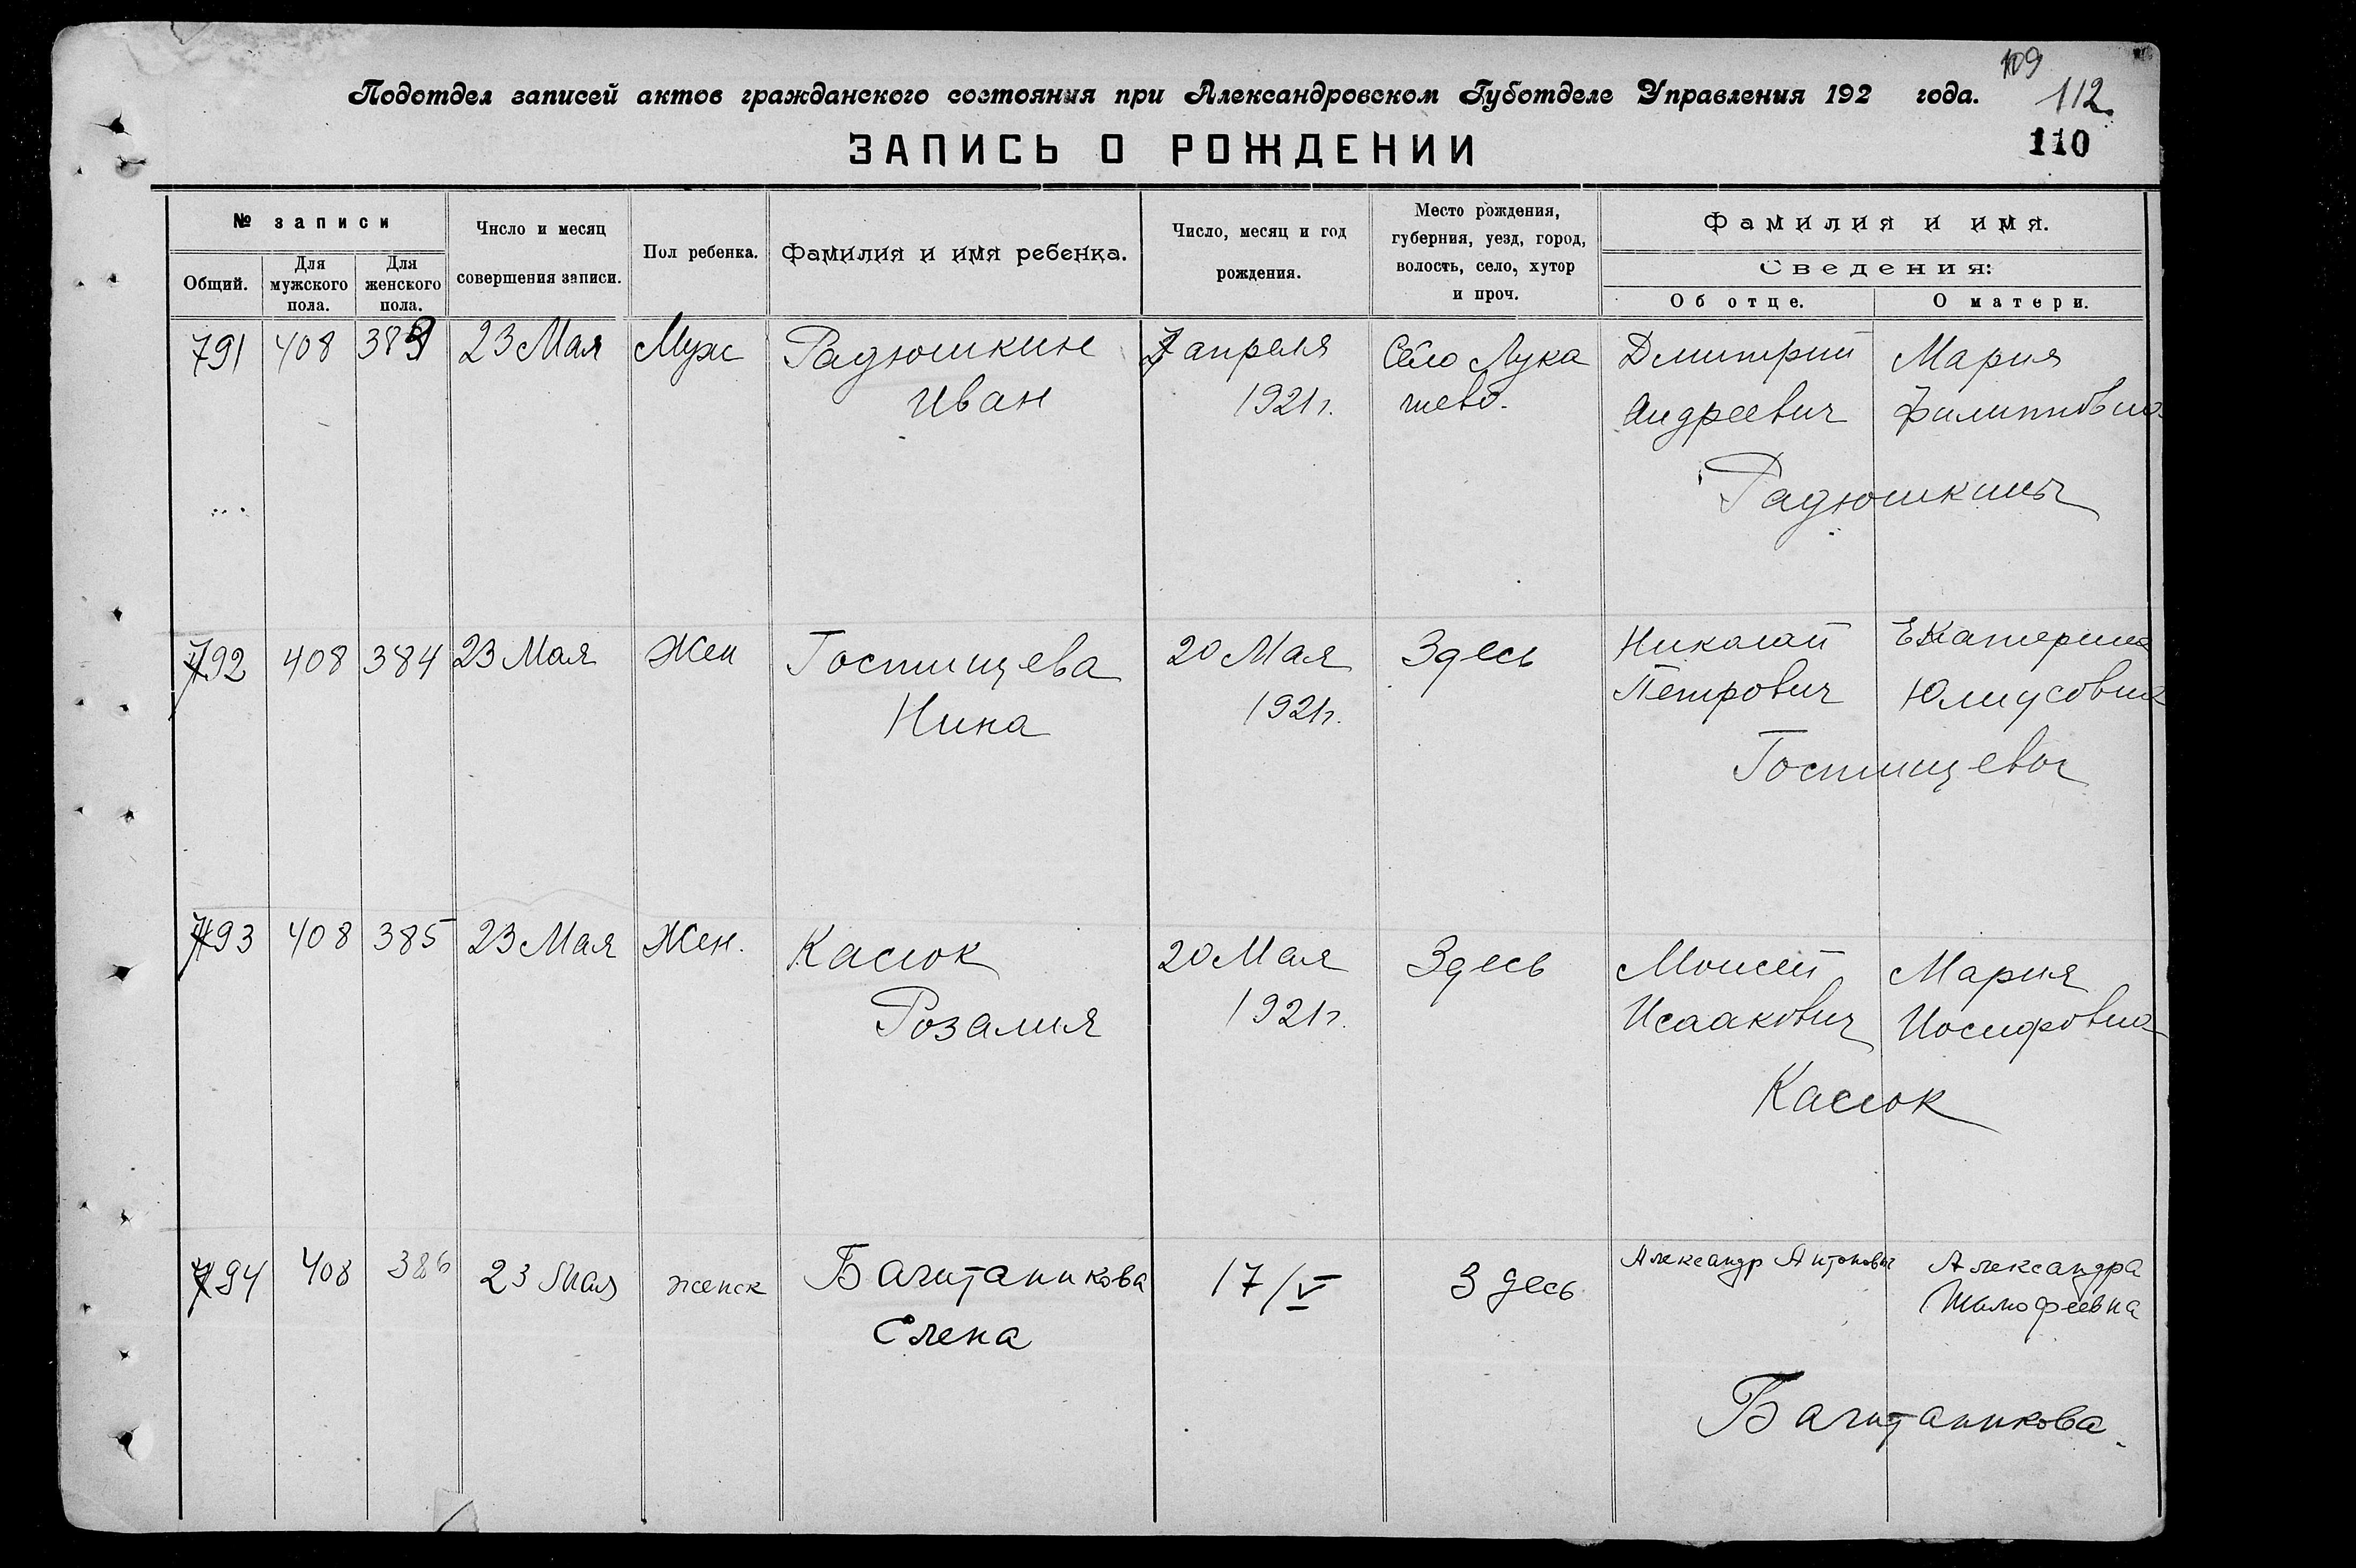 109
Подотдел записей актов гражданского состояния при Александровском Губотделе Управления 192 года.
112
ЗАПИСЬ О РОЖДЕНИИ
110
№ записи
Общий.
Для мужского пола.
Для женского пола.
Число и месяц совершения записи.
Пол ребенка.
Фамилия и имя ребенка.
Число, месяц и год рождения.
Место рождения, губерния, уезд, город, волость, село, хутор и проч.
Фамилия и имя.
Сведения:
Об отце.
О матери.
791 408 383 23 Мая Муж Радюшкин 7 апреля Село Лука Дмитрий Мария
Иван 1921 г. шево. Андреевич Филипповна
Радюшкины
792 408 384 23 Мая Жен Гостищева 20 Мая Здесь Николай Екатерина
Нина 1921 г. Петрович Юлиусовна
Гостищевы
793 408 385 23 Мая Жен. Касюк 20 Мая Здесь Моисей Мария
Розалия 1921 г. Исаакович Иосифовна
Касюк
794 408 386 23 Мая женск 17/V Здесь Александр Антонович Александра
Елена Тимофеевна